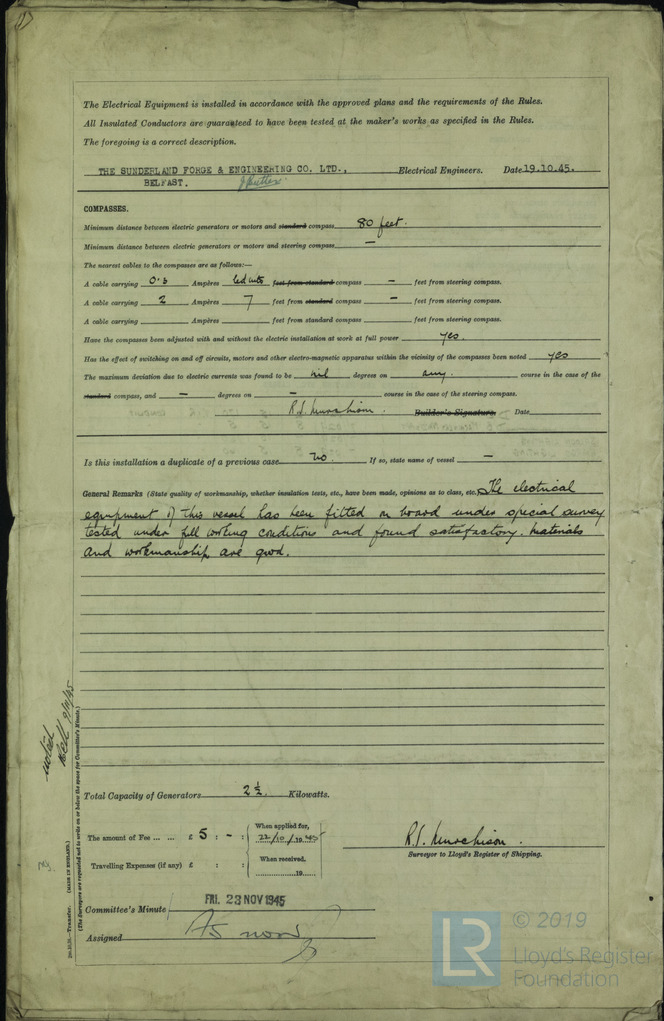 The Electrical Equipment is installed in accordance with the approved plans and the requirements of the Rules.
All Insulated Conductors are guaranteed to have been tested at the maker's works as specified in the Rules.
The foregoing is a correct description.
THE SUNDERLAND FORGE & ENGINEERING CO. LTD., Electrical Engineers. Date 19.10.45.
BELFAST.
COMPASSES.
Minimum distance between electric generators or motors and standard compass 80 feet.
Minimum distance between electric generators or motors and steering compass —
The nearest cables to the compasses are as follows:—
A cable carrying 0.3 Ampères led into feet from standard compass — feet from steering compass.
A cable carrying 2 Ampères 7 feet from standard compass — feet from steering compass.
A cable carrying Ampères feet from standard compass feet from steering compass.
Have the compasses been adjusted with and without the electric installation at work at full power yes.
Has the effect of switching on and off circuits, motors and other electro-magnetic apparatus within the vicinity of the compasses been noted yes
The maximum deviation due to electric currents was found to be nil degrees on any. course in the case of the
standard compass, and — degrees on — course in the case of the steering compass.
R.S. Murchison. Builder's Signature. Date
Is this installation a duplicate of a previous case no. If so, state name of vessel —
General Remarks (State quality of workmanship, whether insulation tests, etc., have been made, opinions as to class, etc. The electrical
equipment of this vessel has been fitted on board under special survey
tested under full working conditions and found satisfactory. Materials
and workmanship are good.
noted
9/11/45
Total Capacity of Generators 2½ Kilowatts.
The amount of Fee ... ... £ 5 : - :
When applied for,
22/10/1945
Travelling Expenses (if any) £ : :
When received,
19
R.S. Murchison.
Surveyor to Lloyd's Register of Shipping.
Committee's Minute FRI. 23 NOV 1945
Assigned As now
(The Surveyors are requested not to write on or below the space for Committee's Minute.)
(MADE IN ENGLAND.)
Transfer.
LR
© 2019
Lloyd's Register
Foundation